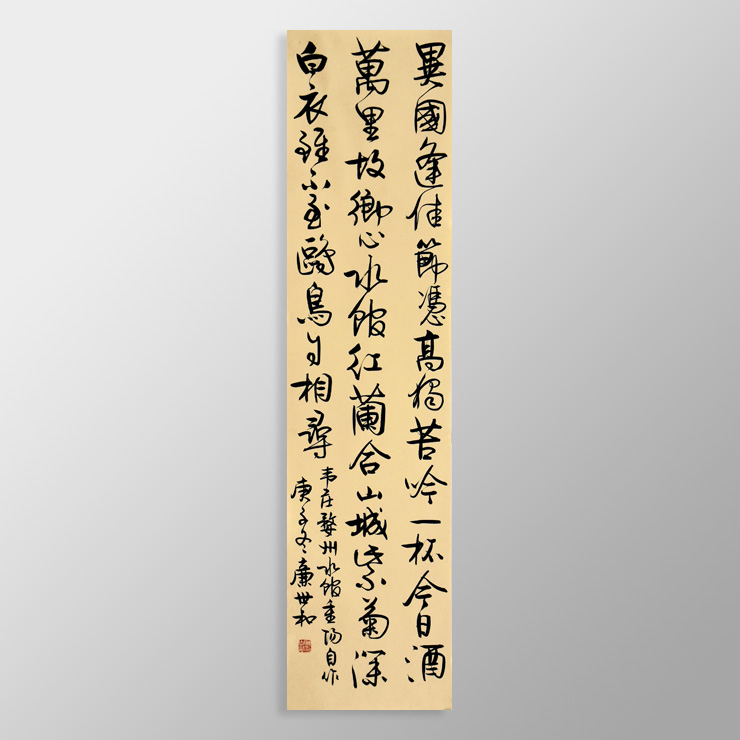 異國逢佳節憑高獨苦吟一杯今日酒
萬里故鄉心水館紅蘭合山城紫菊深
白衣雖不至鷗鳥自相尋
韦庄婺州水館重阳日作
庚子冬廉世和